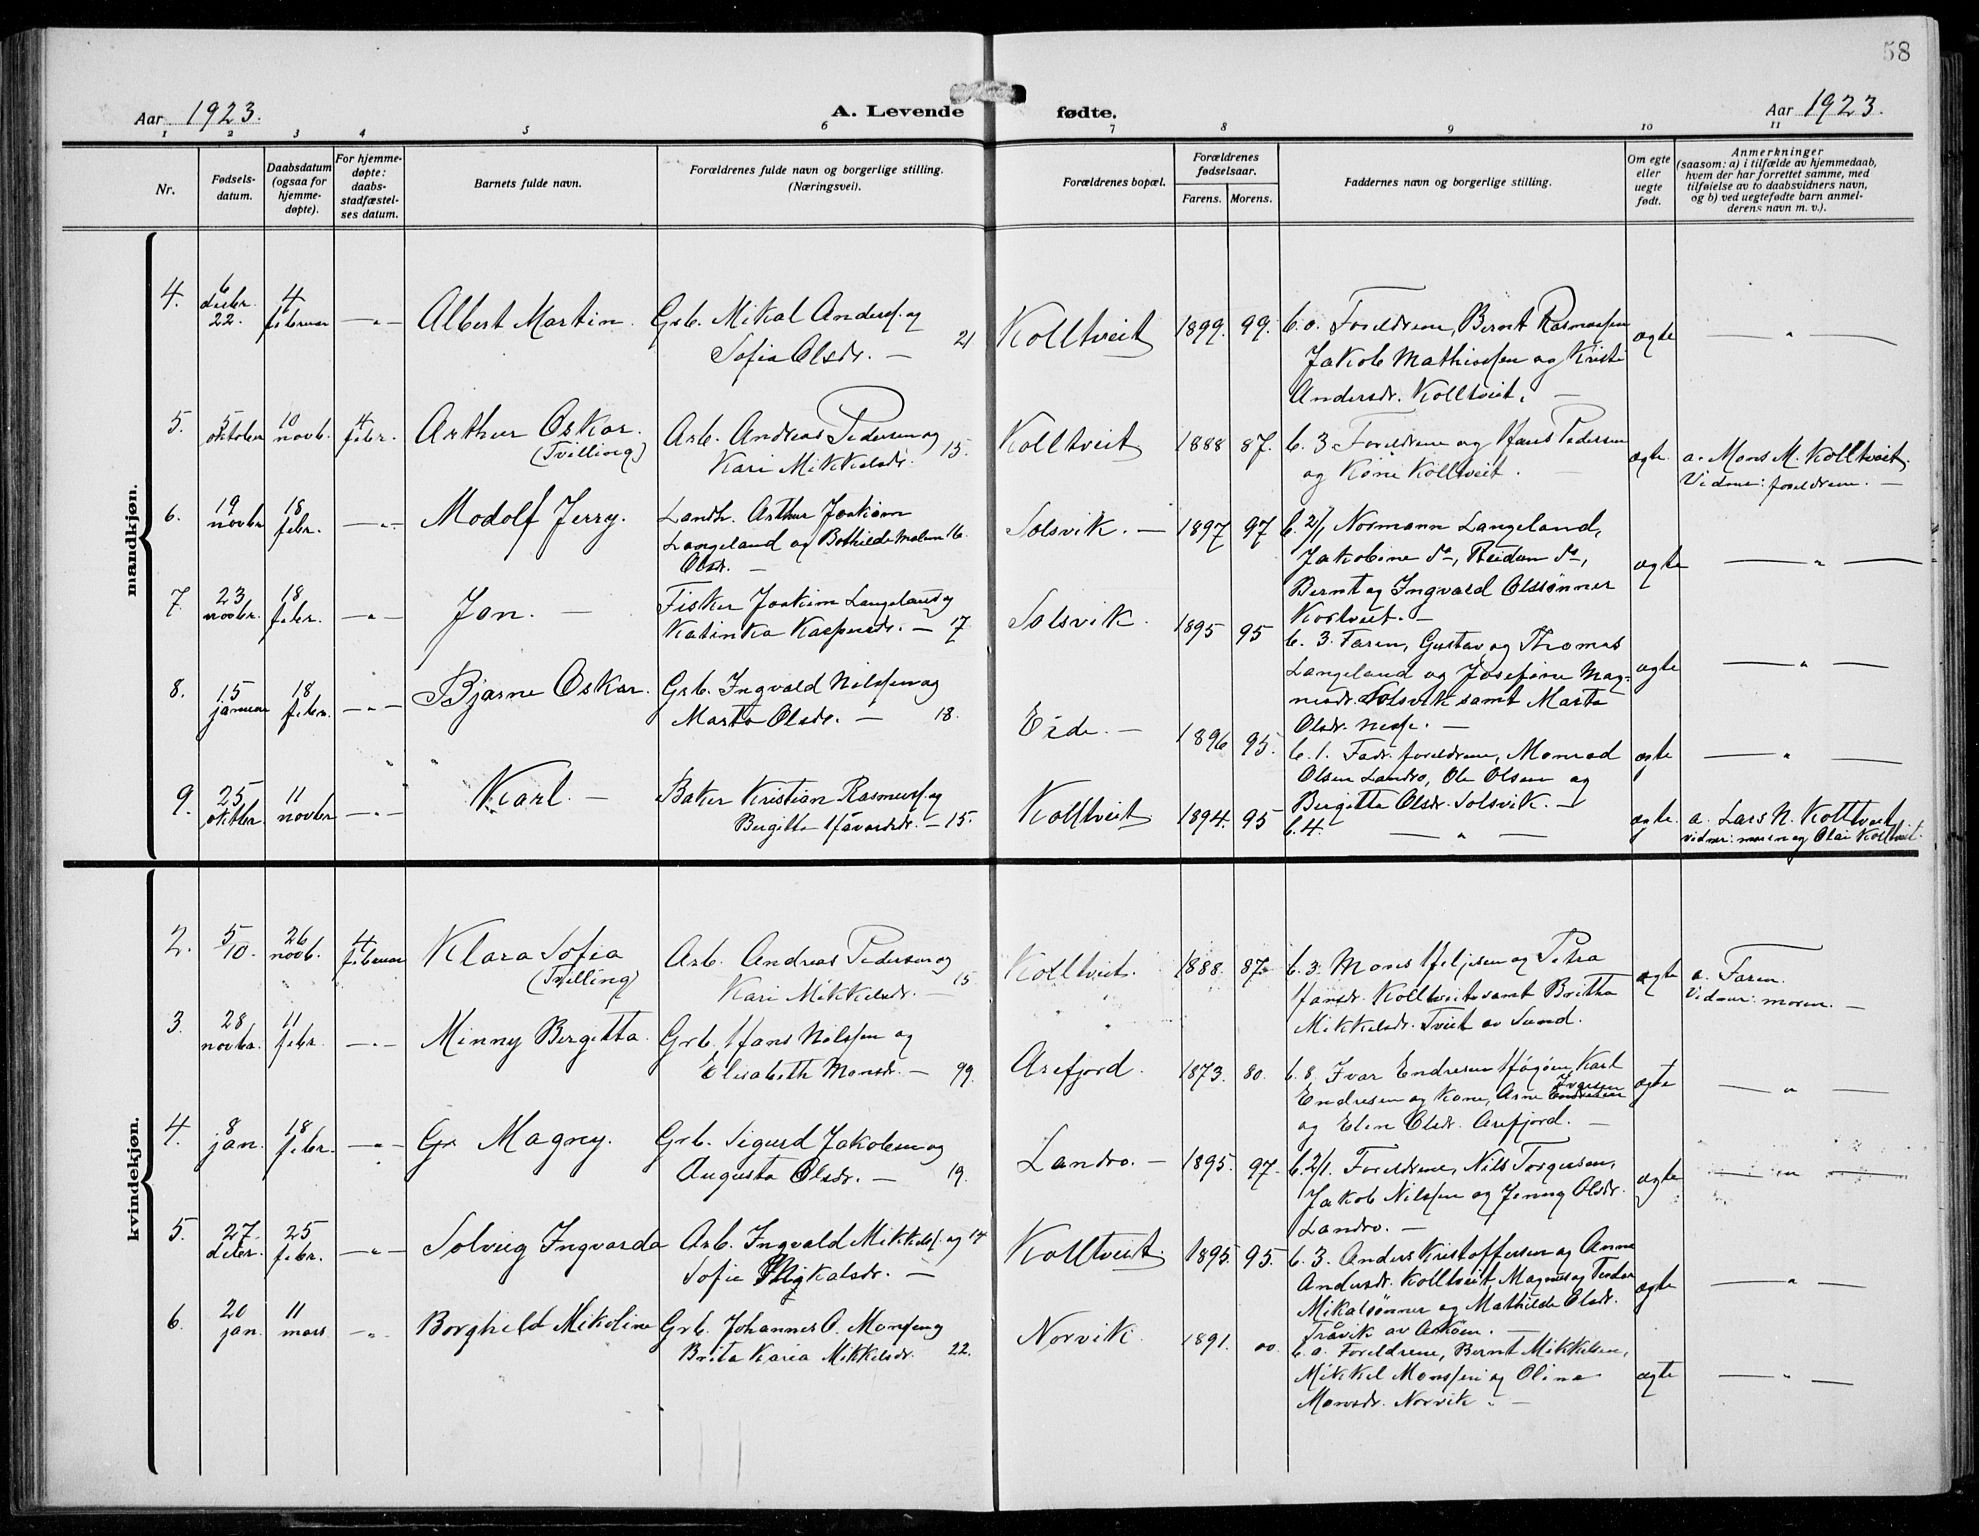 58
Aar 1923.
A. Levende fødte.
Aar 1923.
1 2 3 4 5 6 7 8 9 10 11
Nr.
Fødsels-
datum.
Daabsdatum
(ogsaa for
hjemme-
døpte).
For hjemme-
døpte:
daabs-
stadfæstel-
ses datum.
Barnets fulde navn.
Forældrenes fulde navn og borgerlige stilling.
(Næringsvei).
Forældrenes bopæl.
Forældrenes
fødselsaar.
Farens. Morens.
Faddernes navn og borgerlige stilling.
Om egte
eller
uegte
født.
Anmerkninger
(saasom: a) i tilfælde av hjemmedaab,
hvem der har forrettet samme, med
tilføielse av to daabsvidners navn,
og b) ved uegtefødte barn anmel-
derens navn m. v.).
mandkjøn.
4.
6
desbr.
22.
4
februar
— " —
Albert Martin.
Grb. Mikal Anders. og
Sofia Olsdr. — 21
Kolltveit
1899. 99.
b. 0. Foreldrene, Bernt Rasmussen
Jakob Mathiassen og Kristi
Andersdr. Kolltveit. —
ægte
— " —
5.
5
oktober
10
novb.
4
febr.
Arthur Oskar.
(Tvilling)
Arb. Andreas Pedersen og
Kari Mikkelsdr. 15.
Kolltveit
1888 87.
b. 3 Foreldrene og Hans Pedersen
og Kone Kolltveit. —
ægte
a. Mons M. Kolltveit.
Vidner: foreldrene. —
6.
19
novbr
18
febr.
— " —
Modolf Jerry.
Landh. Arthur Joakim
Langeland og Bothilde Malene 16.
Olsdr. —
Solsvik. —
1897 97
b. 2/1 Normann Langeland,
Jakobine do, Reidun do,
Bernt og Ingvald Olssønner
Kortveit. —
ægte
— " —
7.
23
novbr.
18
febr.
— " —
Jon. —
Fisker Joakim Langeland og
Katinka Kaspersdr. — 17
Solsvik.
1895 95
b. 3. Faren, Gustav og Thomas
Langeland og Josefine Mag-
nesdr. Solsvik samt Marta
Olsdr. Nesse. —
ægte
— " —
8.
15
januar
18
febr.
— " —
Bjarne Oskar.
Grb. Ingvald Nilssen og
Marta Olsdr. — 18.
Eide. —
1896 95.
b. 1. Fadr. foreldrene, Monrad
Olsen Landro, Ole Olsen og
Bergitte Olsdr. Solsvik. —
ægte
— " —
9.
25
oktbr.
11
novbr
— " —
Karl. —
Baker Kristian Rasmuss. og
Bergitta Håvardsdr. — 15.
Kolltveit
1894. 95
b. 4. — " —
ægte.
a. Lars N. Kolltveit.
Vidner: moren og Olai Kolltveit.
kvindekjøn.
2.
5/10.
26
novb.
4
februar
Klara Sofia
(Tvilling)
Arb. Andreas Pedersen og
Kari Mikkelsdr. — 15
Kolltveit.
1888. 87.
b. 3. Mons Heljesen og Petra
Hansdr. Kolltveit samt Britha
Mikkelsdr. Tveit av Sund.
ægte
a. Faren.
Vidner: moren. —
3.
28
novbr.
11
febr.
— " —
Minny Bergitta.
Grb. Hans Nilssen og
Elisabeth Monsdr. — 99.
Arefjord.
1873. 80.
b. 8. Ivar Endresen Kari
Endresen og Kone, Arne Ivarsen
og Elen Olsdr. Arefjord. —
ægte
— " —
4.
8
jan.
18
febr.
— " —
Magny.
Grb. Sigurd Jakobsen og
Augusta Olsdr. — 19.
Landro. —
1895. 97.
b. 2/1. Foreldrene, Nils Torgersen,
Jakob Nilssen og Jenny Olsdr.
Landro. —
ægte
— " —
5.
27
desbr.
25
febr.
— " —
Solveig Ingvarda
Arb. Ingvald Mikkels. og 14
Sofie Mikalsdr. —
Kolltveit.
1895 95.
b. 3. Anders Kristoffersen og Anne
Andersdr. Kolltveit, Magnus og Teodor
Mikalsønner og Mathilde Olsdr.
Tråvik av Askøen. —
ægte
— " —
6.
20
jan.
11
mars
— " —
Borghild Mikoline
Grb. Johannes O. Monsen og
Brita Karia Mikkelsdr. 22.
Norvik
1891. 00.
b. 0. Foreldrene, Bernt Mikkelsen,
Mikkel Monssen og Oline
Monsdr. Norvik. —
ægte
— " —